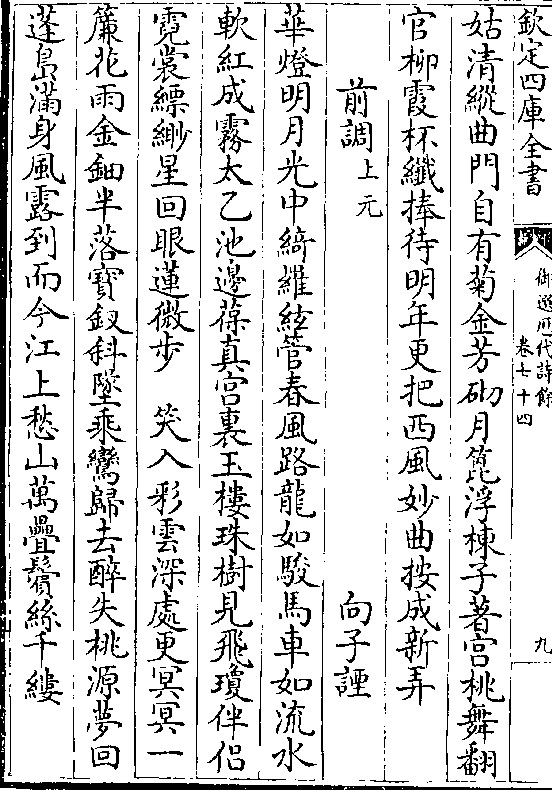 欽定四庫全書
御選歷代詩餘
卷七十四
九
姑清縱曲門自有菊金芳砌月篦浮棟子著宮桃舞翻
官柳霞杯纖捧待明年更把西風妙曲按成新弄
前調上元　向子諲
華燈明月光中綺羅絃管春風路龍如駿馬車如流水
軟紅成霧太乙池邊葆真宮裏玉樓珠樹見飛瓊伴侶
霓裳縹緲星回眼蓮微步　笑入彩雲深處更冥冥一
簾花雨金鈿半落寶釵斜墜乘鸞歸去醉失桃源夢回
蓬島滿身風露到而今江上愁山萬疊鬢絲千縷